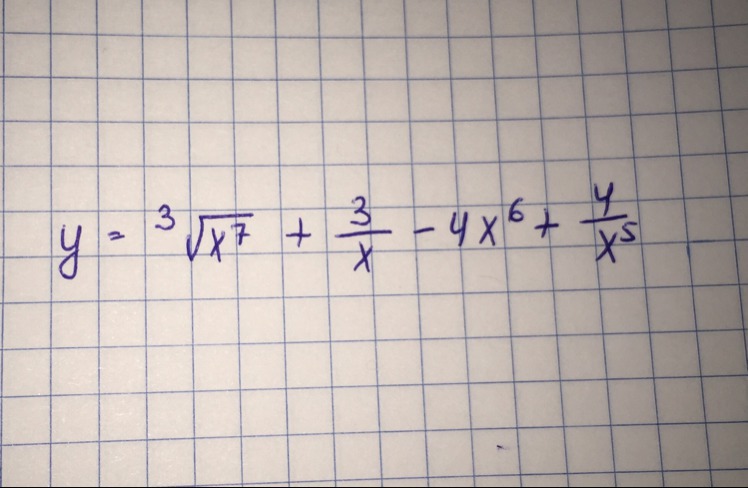 y = ³√x⁷ + 3/x - 4x⁶ + 4/x⁵